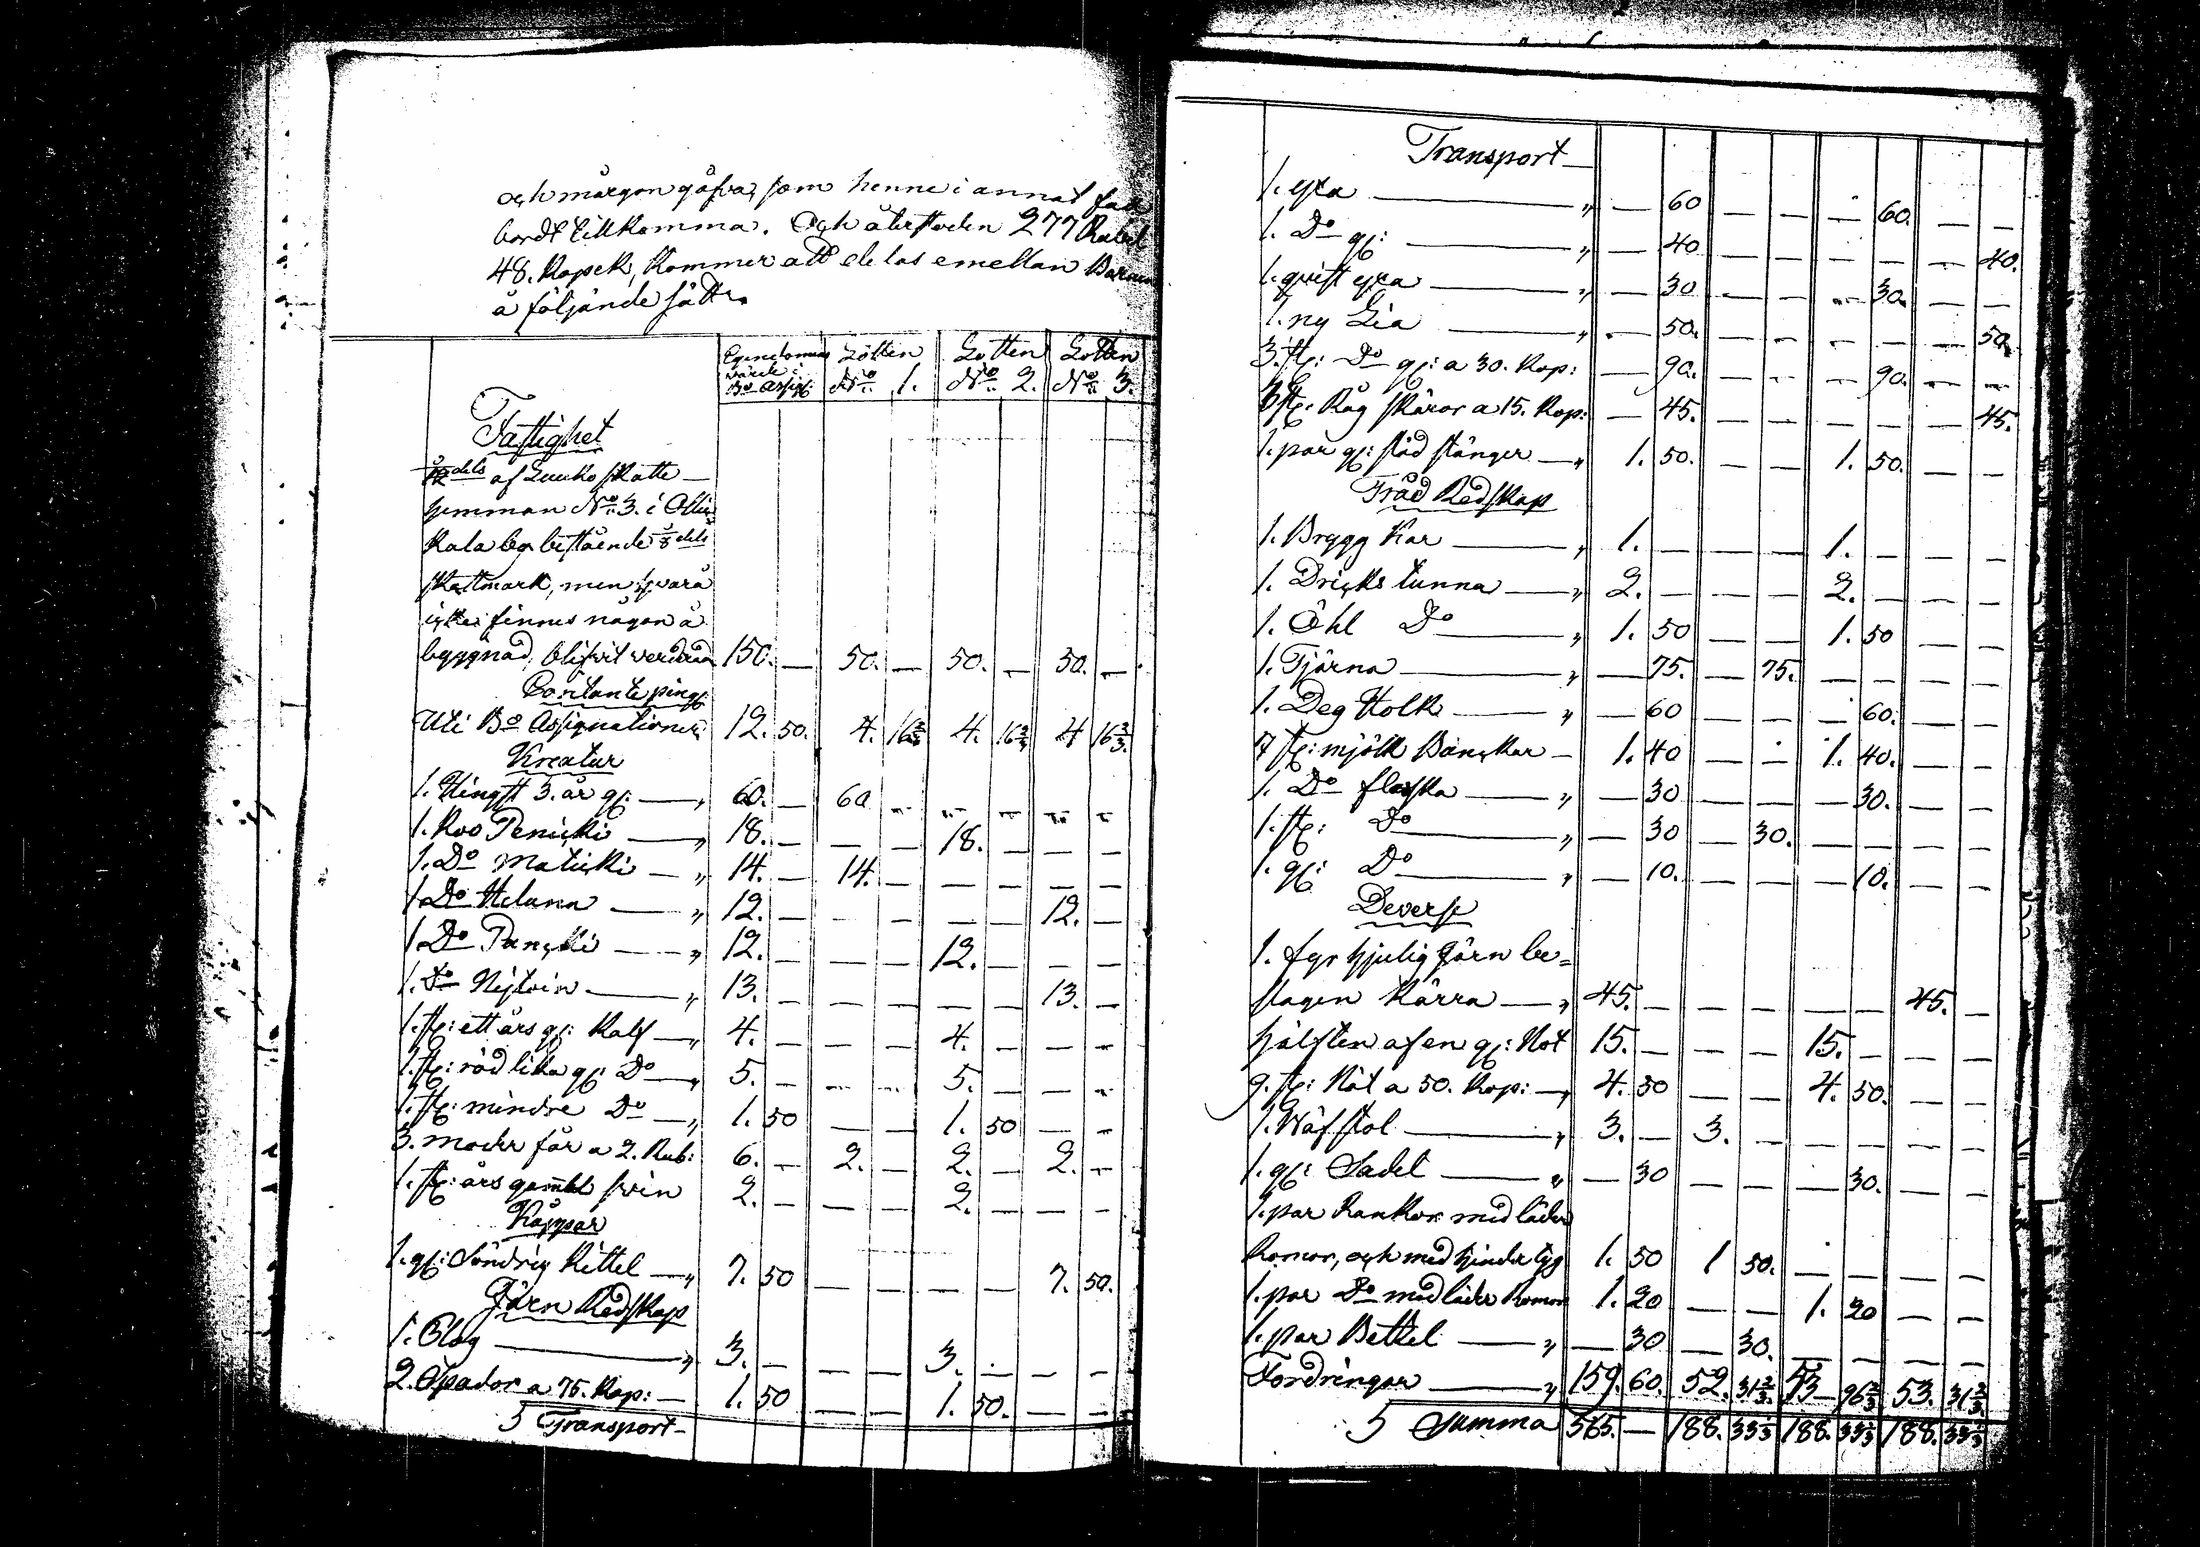 och märgon gåfva, som henne i annat fall
bordt tillkomma. Och återstoden 277 Rubel
48. Kopek, kommer att delas emellan Barnen
å följande sätt.
Egendomens värde i Bo Assig: Lotten No 1. Lotten No 2. Lotten No 3.
Fastighet
dels af skatte
hemman No 3. i
Kala by bestående 1/8 dels
skattmark, men hvarå
icke finnes någon å
byggnad, blifvit värderad 150. — 50. — 50. — 50. —
Contante ping:
Uti Bo Assignationer 12. 50. 4. 16 2/3 4. 16 2/3 4 16 2/3.
Kreatur
1. Hingst 3. år gl: — „ 60. — 60 — — — — —
1. Koo Penicki — „ 18. — — — 18. — — —
1. Do Maticki — „ 14. — 14. — — — — —
1 Do Heluna — „ 12. — — — — — 12. —
1 Do — „ 12. — — — 12. — — —
1. Do — „ 13. — — — — — 13. —
1. st: ett års gl: Kalf — „ 4. — — — 4. — — —
1. st: röd lika gl: Do — „ 5. — — — 5. — — —
1. st: mindre Do — „ 1. 50 — — 1. 50 — —
3. moder får a 2. Rub: 6. — 2. — 2. — 2. —
1. st: års gammal svin 2. — — — 2. — — —
Koppar
1. gl: Söndrig Kittel — „ 7. 50 — — — — 7. 50.
Järn Redskap
1. Plog — „ 3. — — — 3. — — —
2. Spador a 75. Kop: — 1. 50 — — 1. 50. — —
Transport —
Transport —
1. yxa — „ — 60 — — — 60. — —
1. Do gl: — „ — 40 — — — — — 40.
1. qvist yxa — „ — 30 — — — 30. — —
1. ny Lia — „ — 50. — — — — — 50.
3. st: Do gl: a 30. Kop: — 90. — — — 90. — —
3 st: Råg skäror a 15. Kop: — 45. — — — — — 45.
1. par gl: städ stänger — „ 1. 50. — — 1. 50. — —
Träd Redskap
1. Brygg Kar — „ 1. — — — 1. — — —
1. Dricks tunna — „ 2. — — — 2. — — —
1. Öhl Do — „ 1. 50 — — 1. 50 — —
1. Tjärna — „ — 75. — 75. — — — —
1. Deg Holk — „ — 60 — — — 60. — —
7 st: mjölk Bunckar — 1. 40 — — 1. 40. — —
1. Do flaska — „ — 30 — — — 30. — —
1. st: Do — „ — 30 — 30. — — — —
1. gl: Do — „ — 10. — — — 10. — —
Deverse
1. fyr hjulig Järn be=
slagen Kärra — „ 45. — — — — — 45. —
hjälften af en gl: Not 15. — — — 15. — — —
9. st: Nät a 50. Kop: — „ 4. 50 — — 4. 50. — —
1. Wäfstol — „ 3. — 3. — — — — —
1. gl: Sadel — „ — 30 — — — 30. — —
1. par Rankor med läder
Romor, och med hinder tyg 1. 50 1 50. — — — —
1. par Do med läder Romor 1. 20 — — 1. 20 — —
1. par Bettel — „ — 30 — 30. — — — —
Fordringar — „ 159. 60. 52. 31 2/3. 53 — 96 2/3 53. 31 2/3.
Summa 565. — 188. 33 1/3 188. 33 1/3 188. 33 1/3